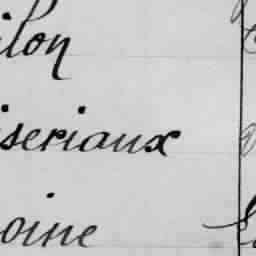 ilon
iseriaux
oine